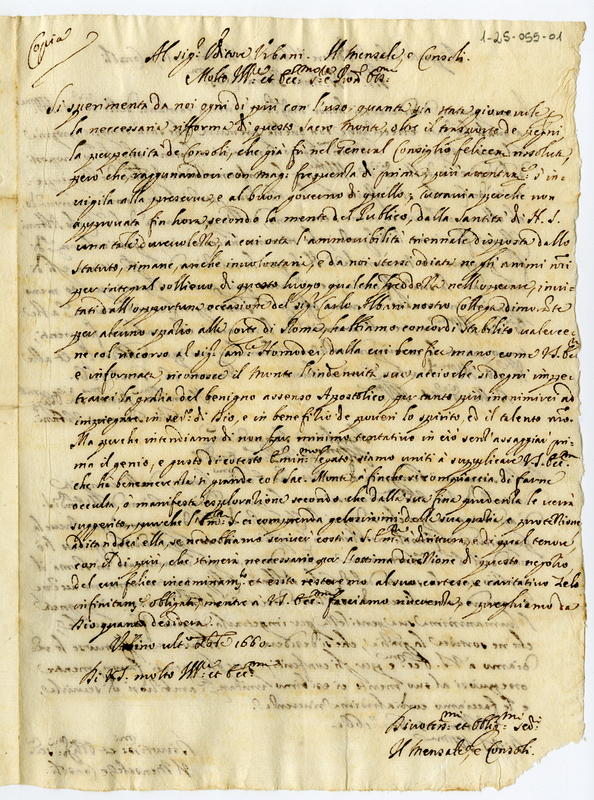 Copia
1-25-055-01
Al sig.r Uditore Urbani. Il Mensale, e Consoli.
Molto Ill.re et Ecc.mo
Si sperimenta da noi ogni dì più con l'uso, quanto sia stata giovevole
la neccessaria rifforma di questo Sacro Monte, oltre il trasporto de pegni,
la perpetuità de Consoli, che già fù nel General Consiglio felicem.te risoluta,
però che raggunandosi con mag.r frequenza di prima, più attentam.te s'in-
vigila alla preserva, e al buon governo di quello; tuttavia perche non
approvata fin hora secondo la mente del Publico, dalla Santità di N. S.
una tale durevolezza, à cui osta l'ammovibilità triennale disposta dallo
Statuto, rimane, anche involontaria, e da noi stessi odiata ne gli animi n̄ri
per integral sollievo di questo luogo qualche freddezza nell'operare, invi-
tati dall'opportuna occasione del sig.r Carlo Albani nostro Collega dimorante
per alcuno spazio alla Corte di Roma, habbiamo concordi stabilito valerce-
ne col ricorso al sig.r Homodei, dalla cui benefica mano, come V.S. Ecc.ma
è informata, riconosce il Monte l'indennità sua, accioche si degni impe-
trarci la gratia del benigno assenso Apostolico, per tanto più inanimirci ad
impiegare in ser.o di Dio, e in benefitio de poveri lo spirito, ed il talento n̄ro.
Ma perche intendiamo di non far minimo tentativo in ciò senz'assaggiar pri-
ma il genio, e gusto di cotesto Em.mo Legato, siamo uniti à supplicare V.S. Ecc.ma
che hà benemerenza si grande col Sac. Monte, à finche si compiaccia di farne
occulta, ò manifesta esplorazione secondo che dalla sua fina prudenza le verrà
suggerito, purche l'Em.za S. ci comprenda gelosissimi della sua gratia, e protettione
Additandoci ella, se ne dobbiamo scrivere costì à S. Em.za à dirittura, e di qual tenore
con di più, che stimerà necessario per l'ottima direttione di questo negotio,
del cui felice incaminam.to et esito resteremo al suo cortese, e caritativo zelo
infinitam.te obligati, mentre à V.S. Ecc.ma facciamo riverenza, e preghiamo da
Dio quanto desidera.
Urbino ult.o 1660
Di V.S. molto Ill.re et Ecc.ma
Divotiss.mi et Obblig.mi
Il Mensale, e Consoli.